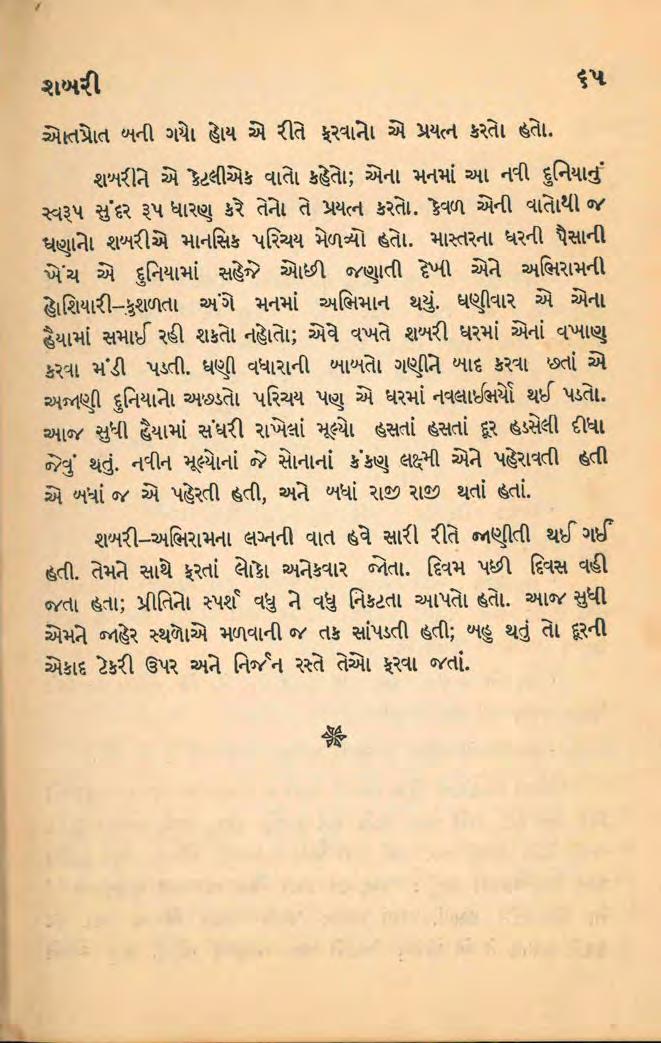 શબરી ૬૫
ઓતપ્રોત બની ગયો હોય એ રીતે ફરવાનો એ પ્રયત્ન કરતો હતો.
શબરીને એ કેટલીએક વાતો કહેતો; એના મનમાં આ નવી દુનિયાનું
સ્વરૂપ સુંદર રૂપ ધારણ કરે તેનો તે પ્રયત્ન કરતો. કેવળ એની વાતોથી જ
ઘણાનો શબરીએ માનસિક પરિચય મેળવ્યો હતો. માસ્તરના ઘરની પૈસાની
ખેંચ એ દુનિયામાં સહેજે ઓછી જણાતી દેખી એને અભિરામની
હોશિયારી–કુશળતા અંગે મનમાં અભિમાન થયું. ઘણીવાર એ એના
હૈયામાં સમાઈ રહી શકતો નહોતો; એવે વખતે શબરી ઘરમાં એનાં વખાણ
કરવા મંડી પડતી. ઘણી વધારાની બાબતો ગણીને બાદ કરવા છતાં એ
અજાણી દુનિયાનો અછડતો પરિચય પણ એ ઘરમાં નવલાઈભર્યો થઈ પડતો.
આજ સુધી હૈયામાં સંઘરી રાખેલાં મૂલ્યો હસતાં હસતાં દૂર હડસેલી દીધા
જેવું થતું. નવીન મૂલ્યોનાં જે સોનાનાં કંકણ લક્ષ્મી એને પહેરાવતી હતી
એ બધાં જ એ પહેરતી હતી, અને બધાં રાજી રાજી થતાં હતાં.
શબરી–અભિરામના લગ્નની વાત હવે સારી રીતે જાણીતી થઈ ગઈ
હતી. તેમને સાથે ફરતાં લોકો અનેકવાર જોતા. દિવમ પછી દિવસ વહી
જતા હતા; પ્રીતિનો સ્પર્શ વધુ ને વધુ નિકટતા આપતો હતો. આજ સુધી
એમને જાહેર સ્થળોએ મળવાની જ તક સાંપડતી હતી; બહુ થતું તો દૂરની
એકાદ ટેકરી ઉપર અને નિર્જન રસ્તે તેઓ ફરવા જતાં.